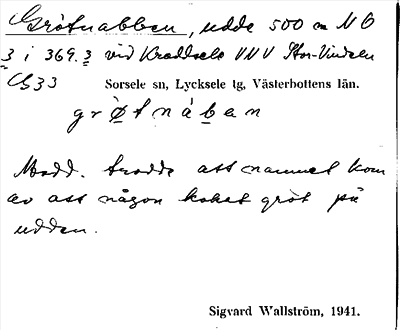 Grötnabben, udde 500 m NO
3 i 369.3 vid Kraddsele VNV Stor-Vindeln
C833 Sorsele sn, Lycksele lg, Västerbottens län.
grøtnàban
Medd. trodde att namnet kom
av att någon kokat gröt på
udden.
Sigvard Wallström, 1941.